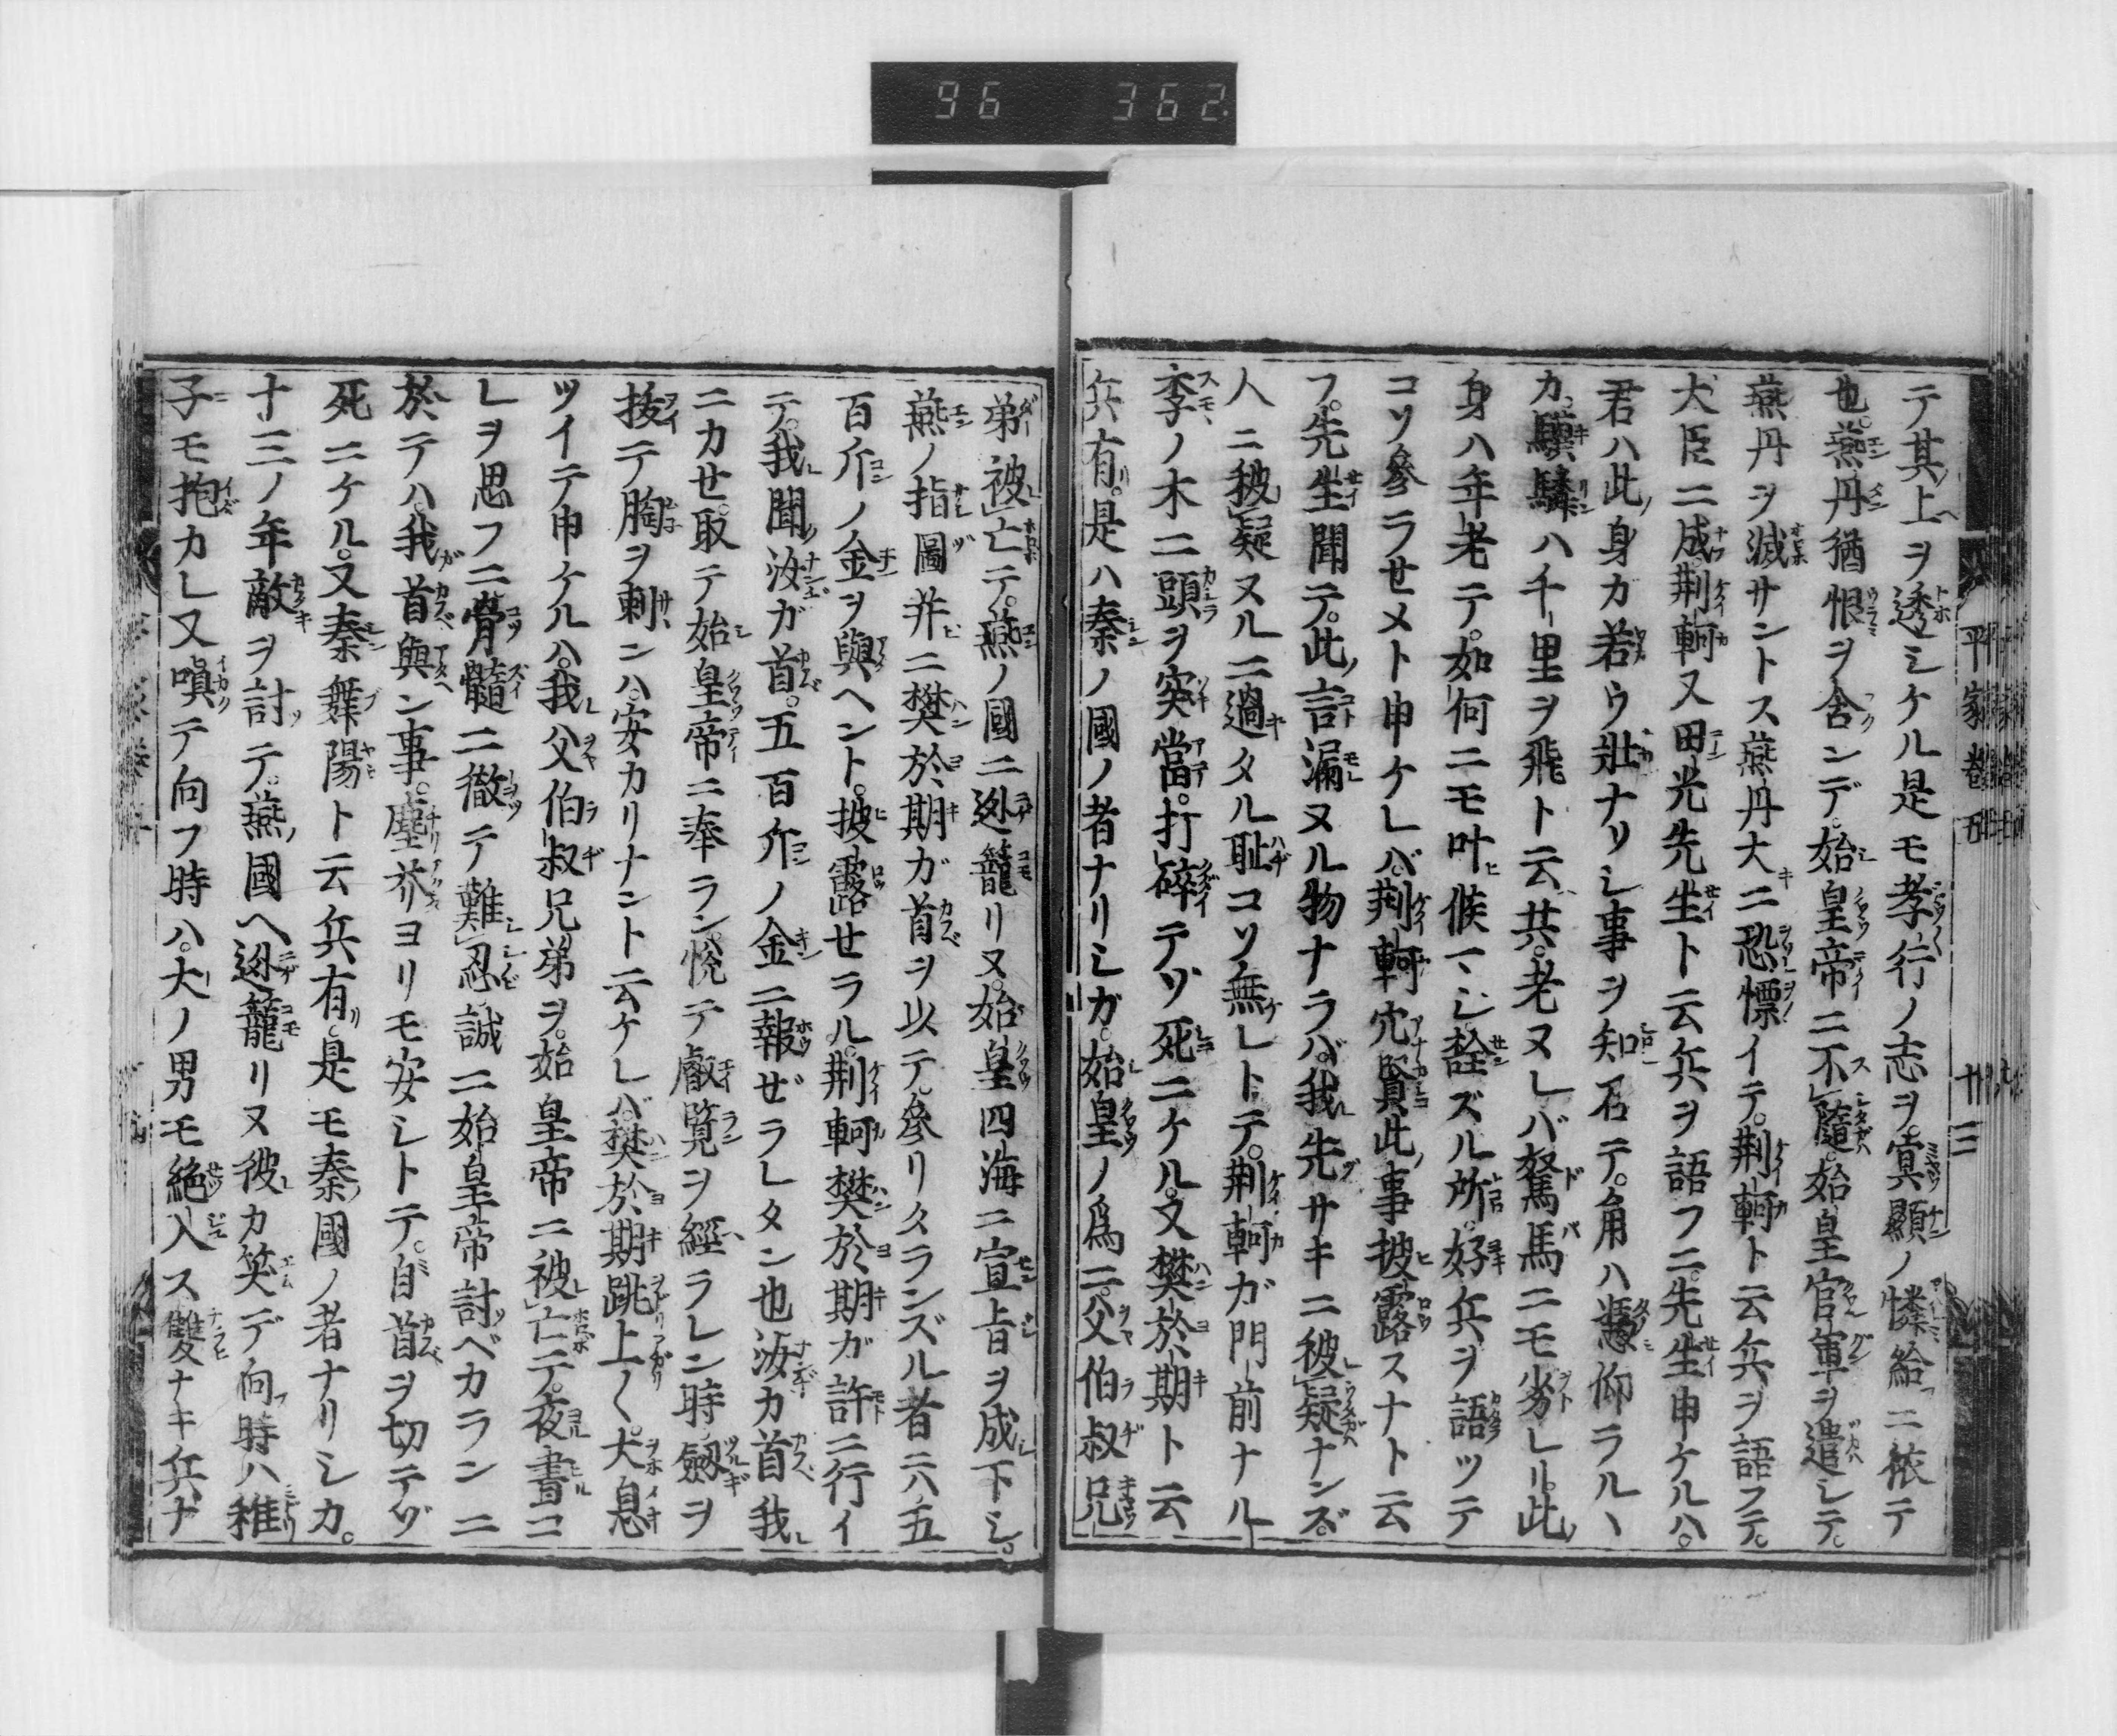 96 362.
平家巻五 十三
テ其上ヲ透シケル是モ孝行ノ志ヲ冥顕ノ憐給ニ依テ
也。燕丹猶恨ヲ含ンデ。始皇帝ニ不隨。始皇官軍ヲ遣シテ。
燕丹ヲ滅サントス燕丹大ニ恐慄イテ。荆軻ト云兵ヲ語フテ。
大臣ニ成。荆軻又田光先生ト云兵ヲ語フニ。先生申ケルハ。
君ハ此身ガ若ウ壮ナリシ事ヲ知召テ。角ハ憑仰ラルヽ
カ。騏驎ハ千里ヲ飛ト云共。老ヌレバ駑馬ニモ劣レリ。此
身ハ年老テ。如何ニモ叶候マシ。詮ズル所。好兵ヲ語ツテ
コソ參ラせメト申ケレバ。荆軻穴賢此事披露スナト云
フ。先生聞テ。此言漏ヌル物ナラバ。我先サキニ被疑ナンズ。
人ニ被疑ヌルニ過タル耻コソ無レトテ。荆軻ガ門前ナル
李ノ木ニ頭ヲ突當。打碎テゾ死ニケル。又樊於期ト云
兵有。是ハ秦ノ國ノ者ナリシガ。始皇ノ爲ニ。父伯叔兄
弟被亡テ。燕ノ國ニ迯籠リヌ。始皇四海ニ宣旨ヲ成下シ。
燕ノ指圖并ニ樊於期ガ首ヲ以テ。參リタランズル者ニハ五
百斤ノ金ヲ與ヘント。披露せラル。荆軻樊於期ガ許ニ行イ
テ。我聞汝ガ首。五百斤ノ金ニ報ぜラレタン也汝カ首我
ニカせ。取テ始皇帝ニ奉ラン。悦テ叡覧ヲ經ラレン時。劔ヲ
拔テ胸ヲ刺ンハ。安カリナント云ケレバ。樊於期跳上〱。大息
ツイテ申ケルハ。我父伯叔兄弟ヲ。始皇帝ニ被亡テ。夜晝コ
レヲ思フニ骨髓ニ徹テ難忍。誠ニ始皇帝討ベカランニ
於テハ。我首與ン事。塵芥ヨリモ安シトテ。自首ヲ切テゾ
死ニケル。又秦舞陽ト云兵有。是モ秦國ノ者ナリシカ。
十三ノ年敵ヲ討テ。燕國ヘ迯籠リヌ彼カ笑デ向時ハ稚
子モ抱カレ又嗔テ向フ時ハ。大ノ男モ絶入ス雙ナキ兵ナ